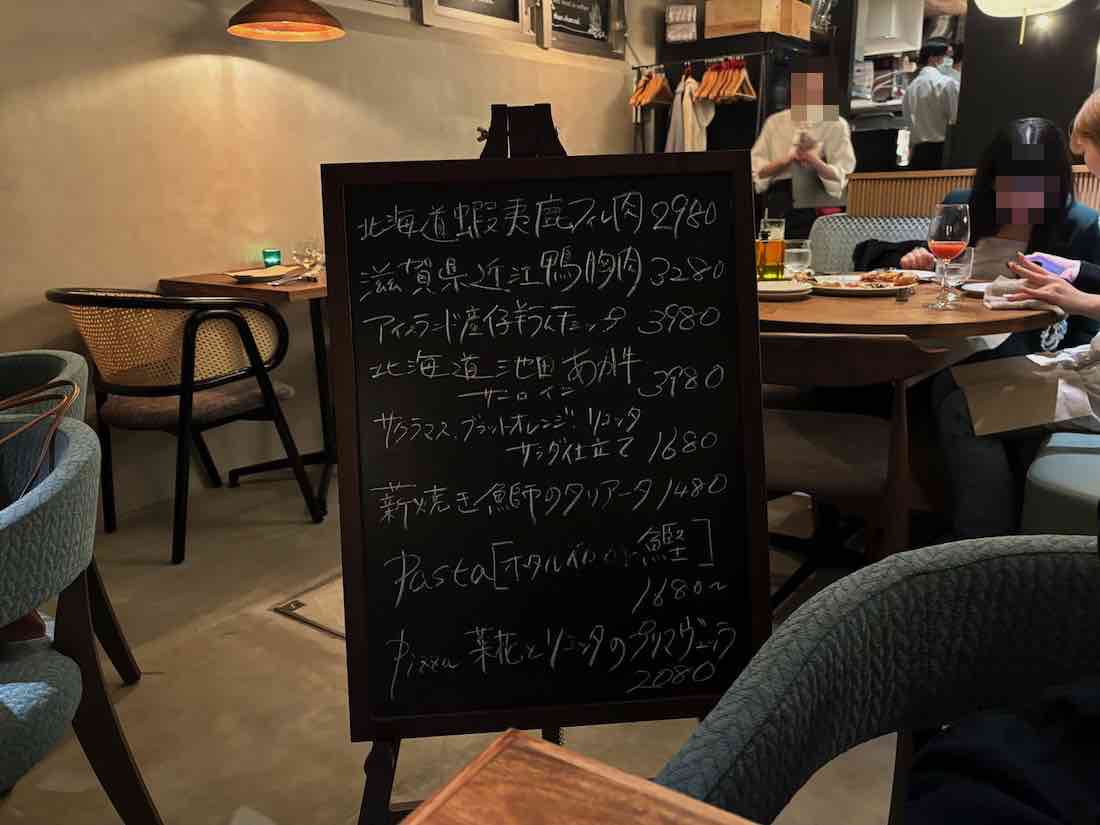 北海道蝦夷鹿フィレ肉 2980
滋賀県近江鴨胸肉 3280
アイスランド産仔羊ラムチョップ 3980
北海道池田あか牛
サーロイン 3980
サクラマス、ブラッドオレンジ、リコッタ
サラダ仕立て 1680
薪焼き鰤のタリアータ 1480
Pasta [ホタルイカ 鰹]
1680~
Pizza 菜花とリコッタのプリマヴェーラ
2080